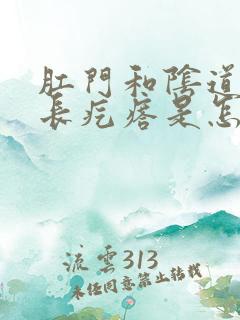 肛門和陰道
長疙瘩是怎
流雲313
未经同意禁止转载